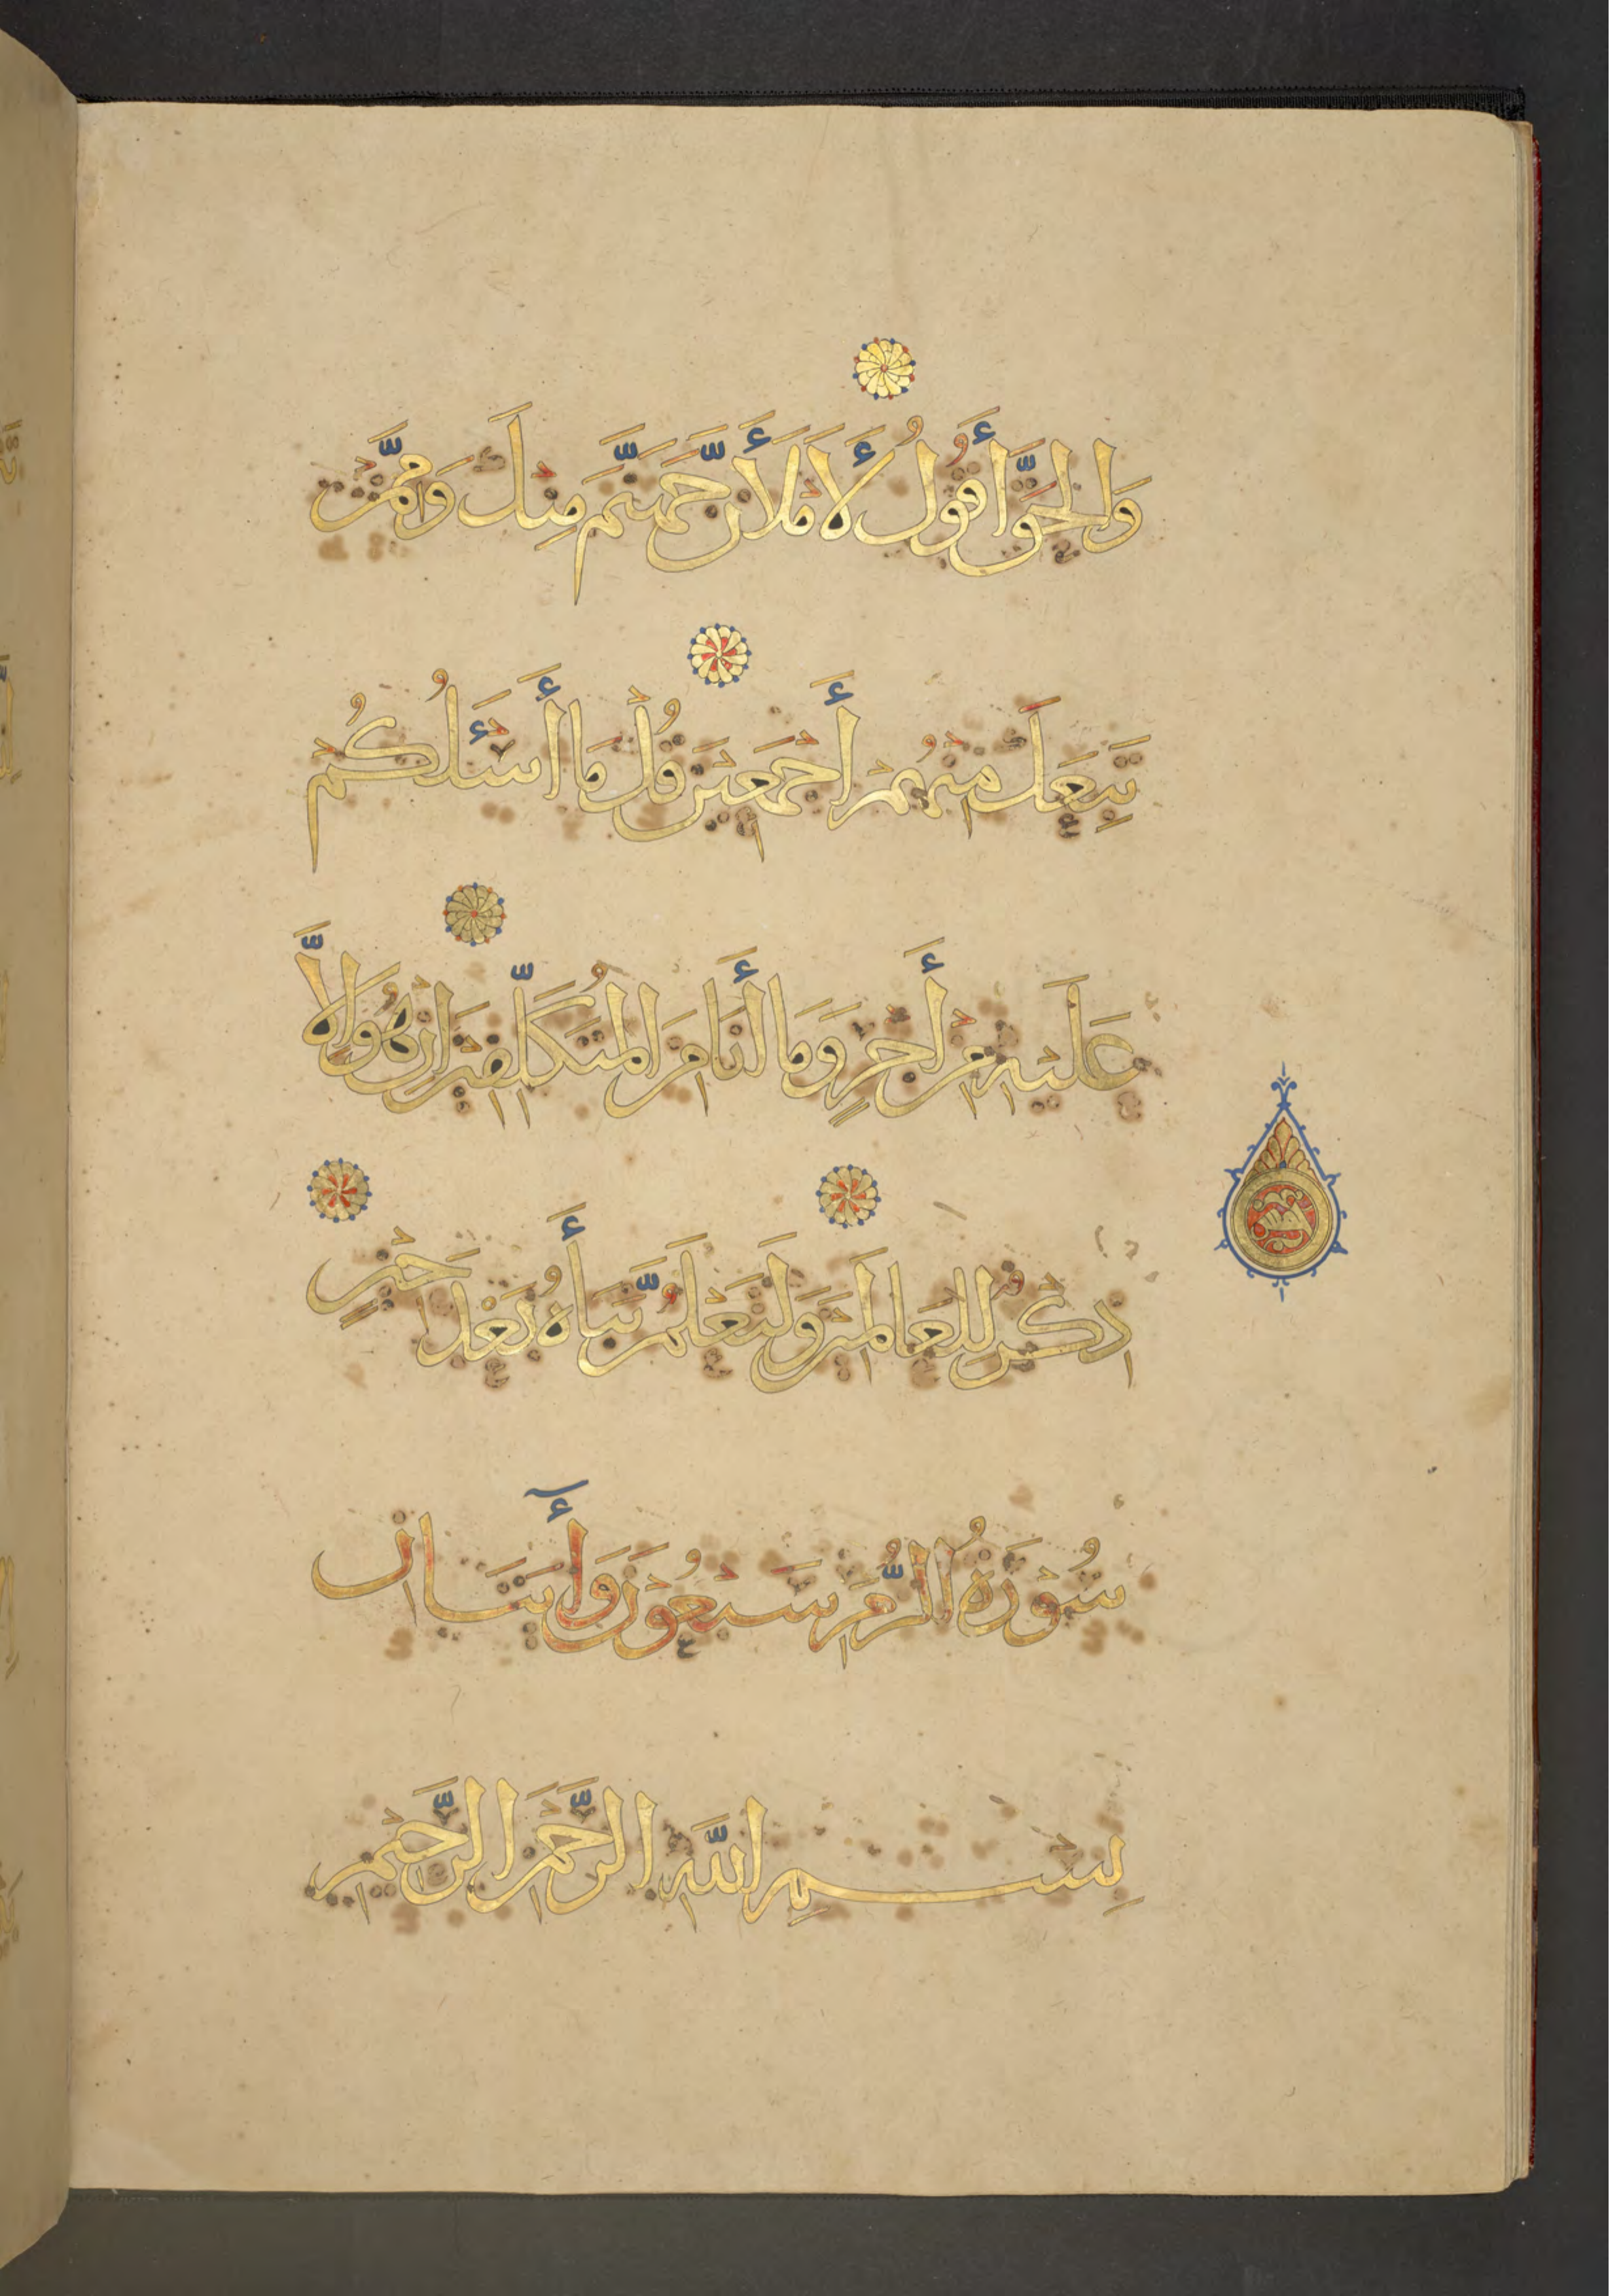 وَالْحَقَّ أَقُولُ لَأَمْلَأَنَّ جَهَنَّمَ مِنْكَ وَمِمَّنْ
تَبِعَكَ مِنْهُمْ أَجْمَعِينَ قُلْ مَا أَسْئَلُكُمْ
عَلَيْهِ مِنْ أَجْرٍ وَمَا أَنَا مِنَ الْمُتَكَلِّفِينَ إِنْ هُوَ إِلَّا
ذِكْرٌ لِلْعَالَمِينَ وَلَتَعْلَمُنَّ نَبَأَهُ بَعْدَ حِينٍ
سُوْرَةُ الزُّمَرِ سَبْعُوْنَ وَأٓيَتَانِ
بِسْمِ اللَّهِ الرَّحْمَنِ الرَّحِيْمِ